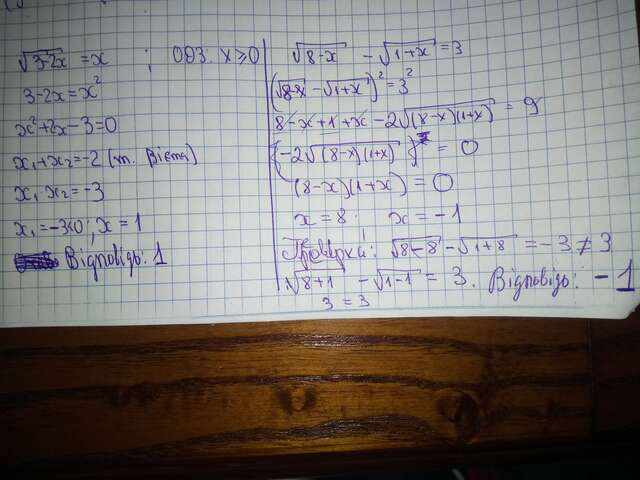 √3-2x = x ; ОДЗ: x≥0
3-2x = x²
x²+2x-3=0
x₁+x₂=-2 (т. Вієта)
x₁x₂=-3
x₁=-3<0; x=1
Відповідь: 1
√8-x - √1+x = 3
(√8-x - √1+x)² = 3²
8-x+1+x-2√(8-x)(1+x) = 9
(-2√(8-x)(1+x) = 0
(8-x)(1+x) = 0
x=8; x=-1
Перевірка: √8-8 - √1+8 = -3≠3
√8+1 - √1-1 = 3. Відповідь: -1
3=3